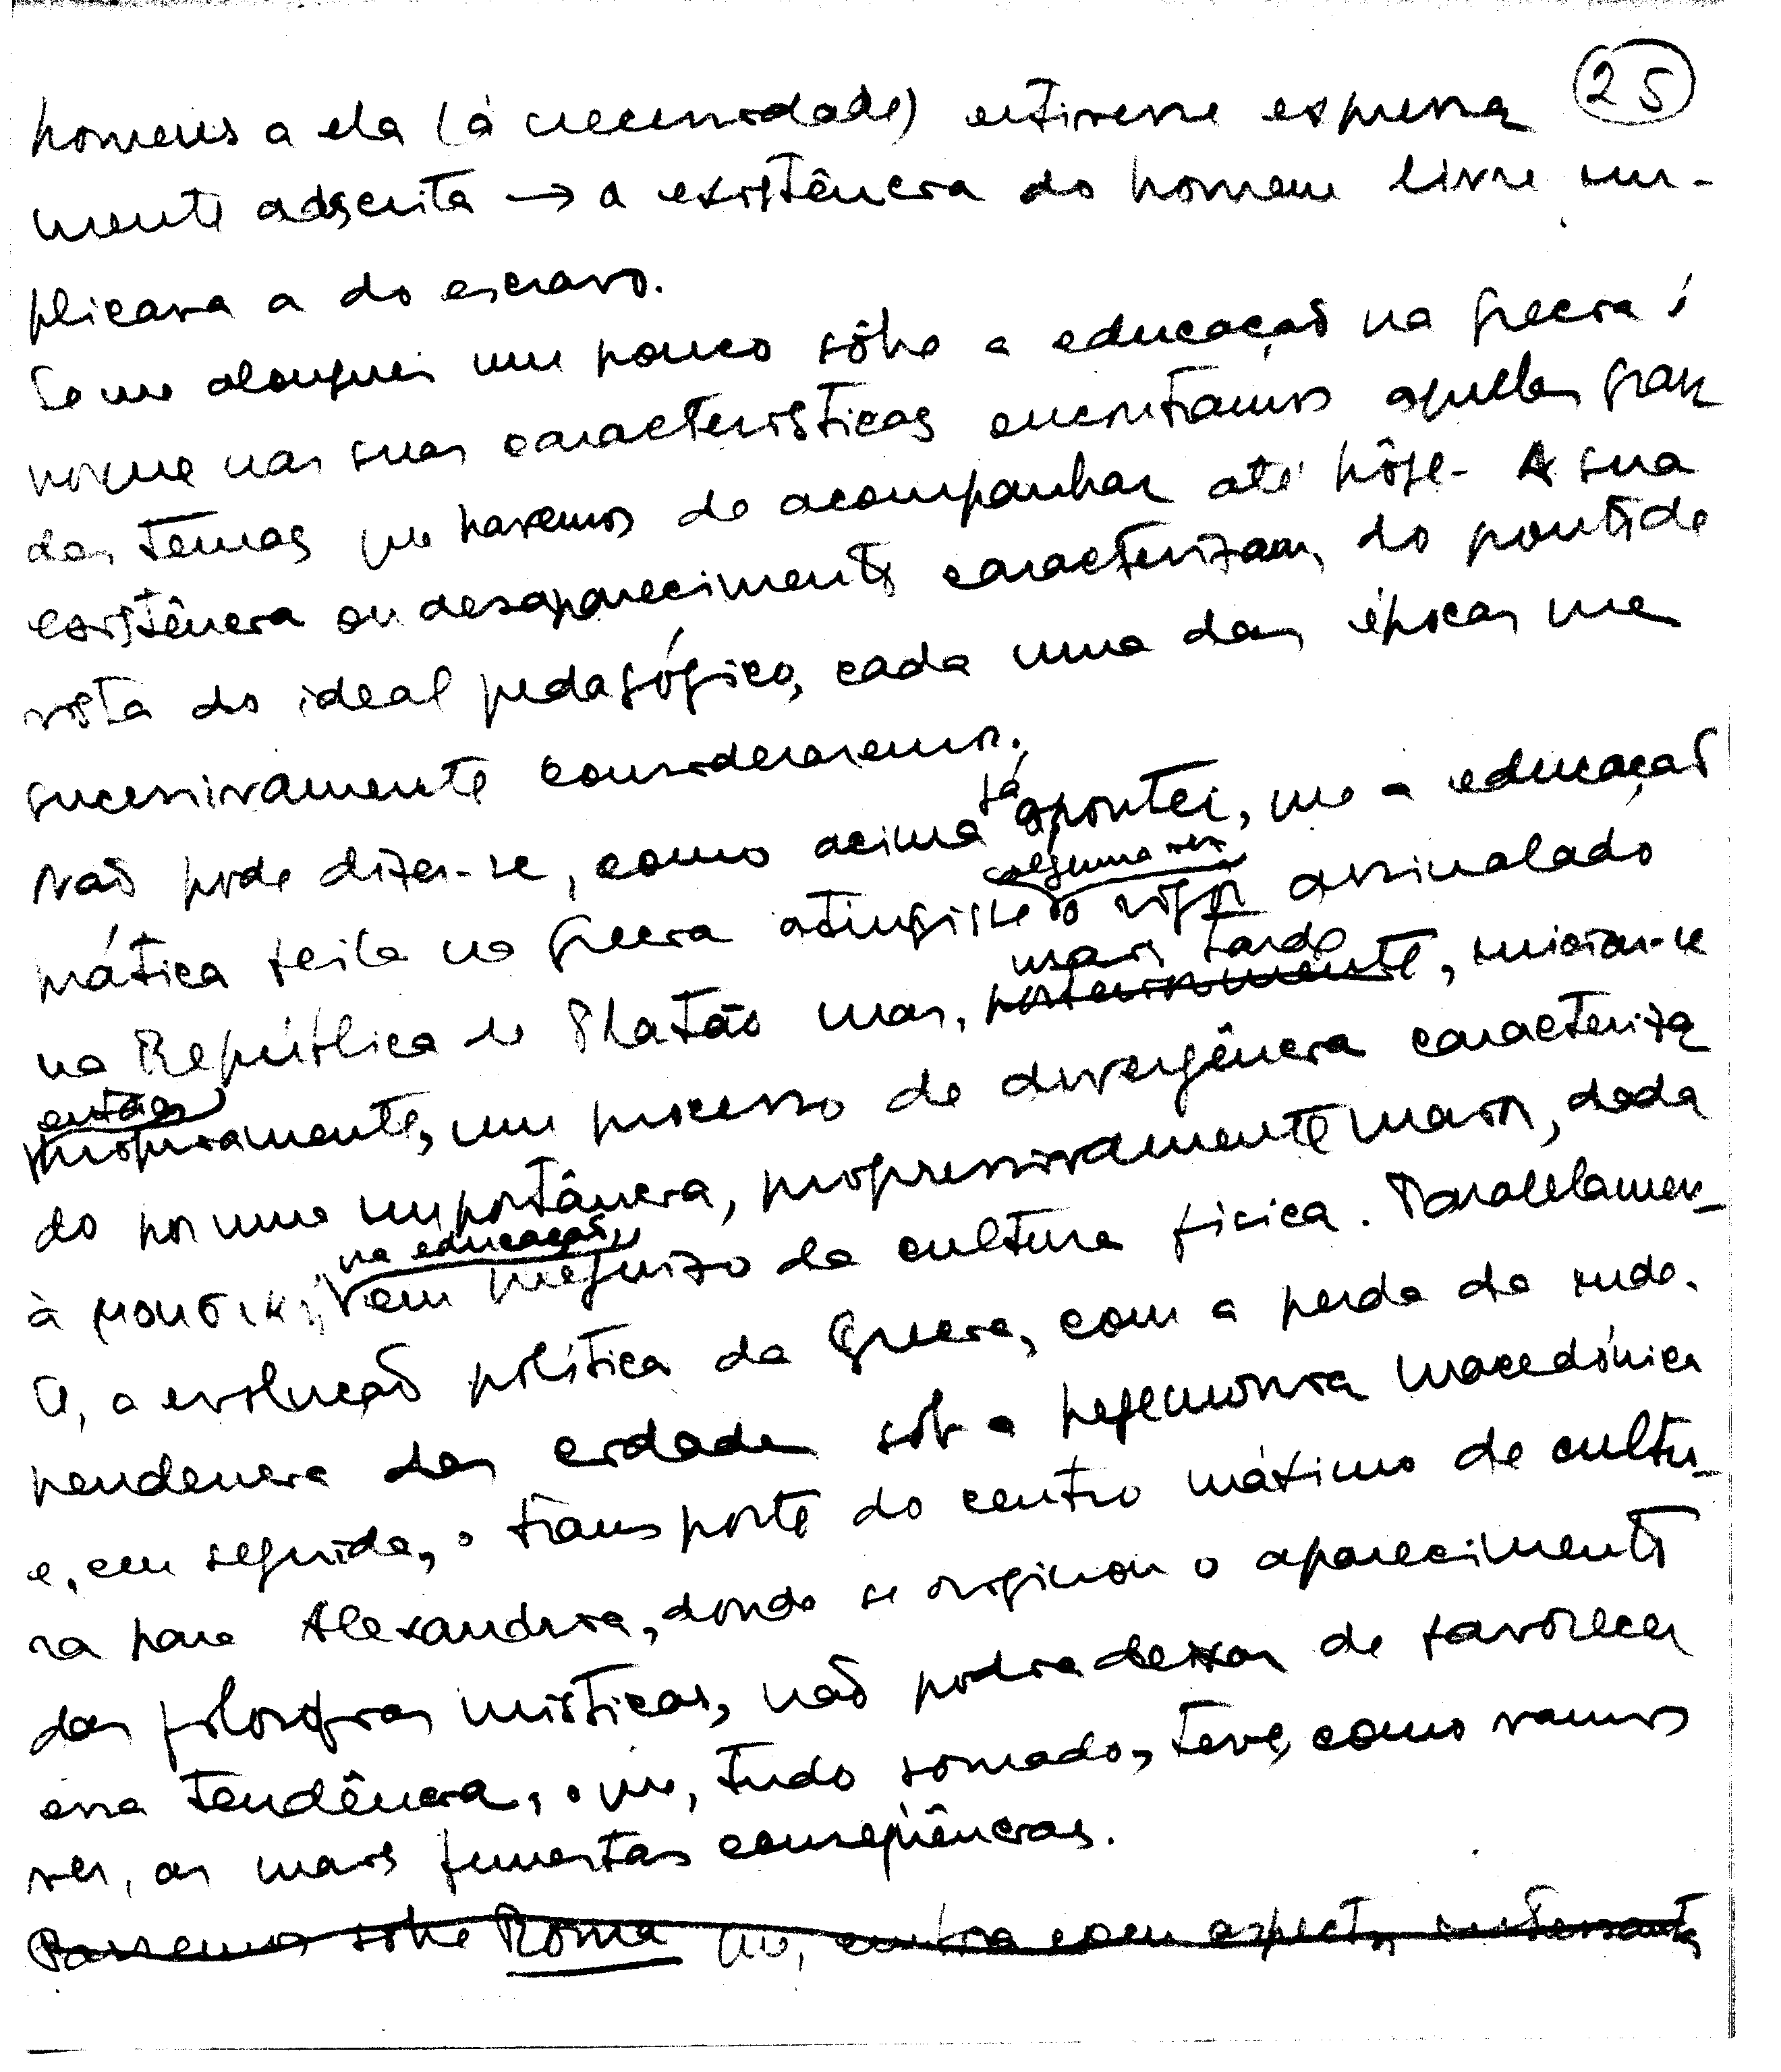 25
homens a ela (à necessidade) estivesse expressa
mente adscrita → a existência do homem livre im-
plicava a do escravo.
Se me alonguei um pouco sôbre a educação na Grecia é
porque nas suas características encontramos aqueles gran
des temas que havemos de acompanhar até hôje. A sua
existência ou desaparecimento caracterizam, do ponto de
vista do ideal pedagógico, cada uma das épocas que
sucessivamente consideraremos.
Não pode dizer-se, como acima já apontei, que a educação
prática feita na Grecia atingisse alguma vez o rigor assinalado
na República de Platão mas, mais tarde posteriormente, iniciou-se
então propriamente, um processo de divergência caracteriza
do por uma importância, progressivamente maior, dada
à μουσικη, na educação, em prejuizo da cultura fisica. Paralelamen-
te, a evolução política da Grecia, com a perda da inde-
pendencia das cidades sob a hegemonia macedónica
e, em seguida, o transporte do centro máximo de cultu-
ra para Alexandria, donde se originou o aparecimento
das filosofias misticas, não podia deixar de favorecer
essa tendência, o que, tudo somado, teve, como vamos
ver, as mais funestas conseqüências.
Passemos sobre Roma que, embora com aspectos interessantes